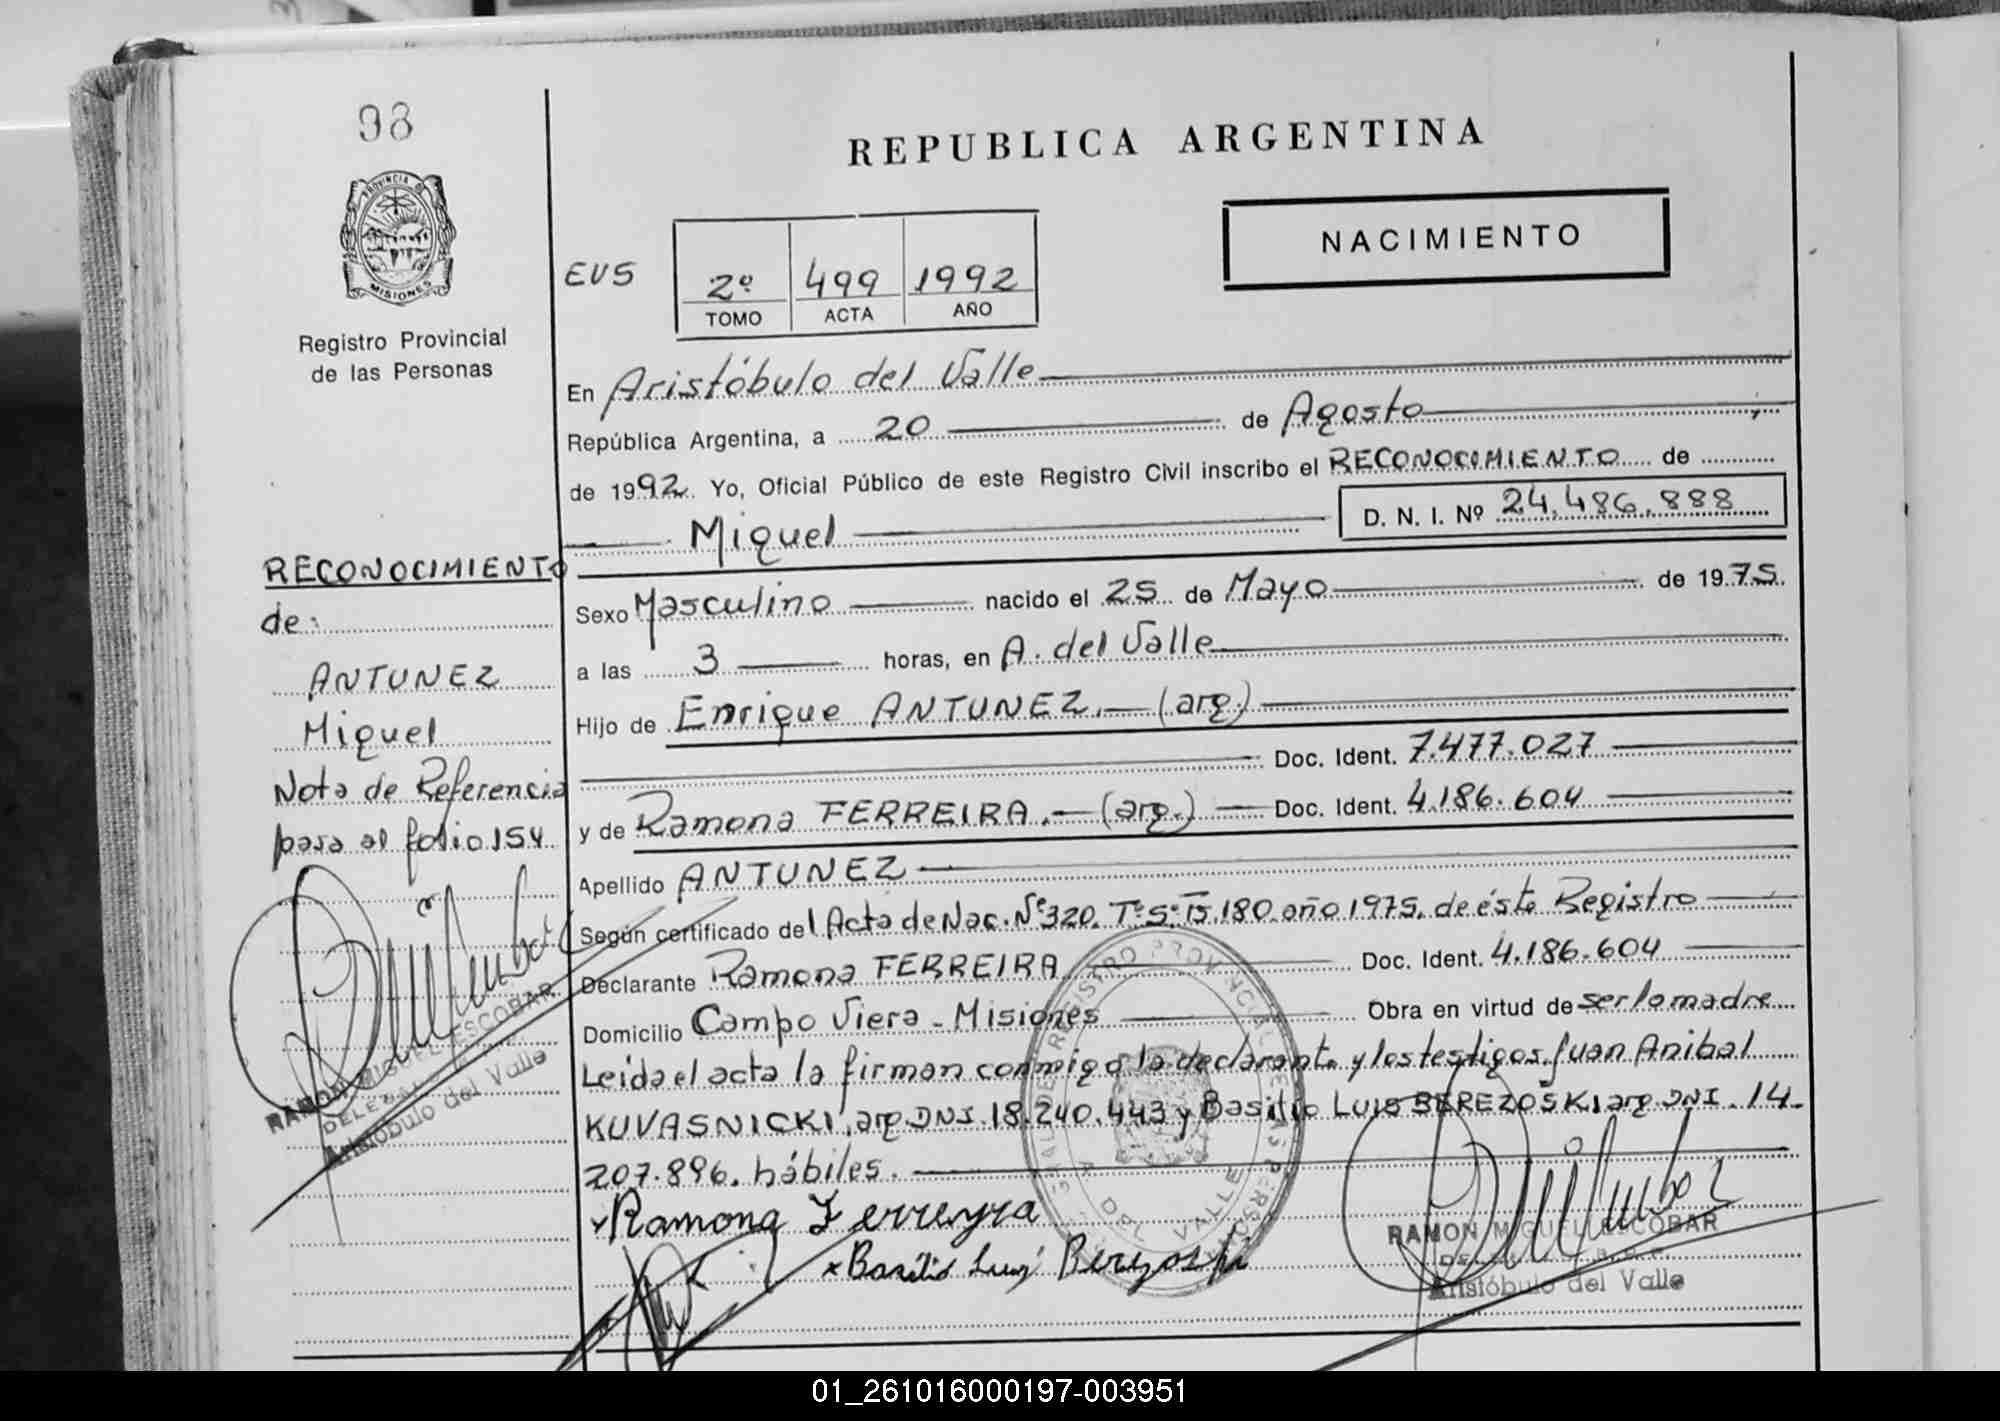 98
PROVINCIA DE
MISIONES
Registro Provincial
de las Personas
REPUBLICA ARGENTINA
NACIMIENTO
EVS
2º 499 1992
TOMO ACTA AÑO
En Aristóbulo del Valle
República Argentina, a 20 de Agosto,
de 1992. Yo, Oficial Público de este Registro Civil inscribo el RECONOCIMIENTO de
Miguel D. N. I. Nº 24.486.888
Sexo Masculino nacido el 25 de Mayo de 1975.
a las 3 horas, en A. del Valle
Hijo de Enrique ANTUNEZ.-(arg.)
Doc. Ident. 7.477.027
y de Ramona FERREIRA.-(arg.) Doc. Ident. 4.186.604
Apellido ANTUNEZ
Según certificado del Acta de Nac. Nº 320. Tº 5º Fº 180. año 1975. de éste Registro
Declarante Ramona FERREIRA Doc. Ident. 4.186.604
Domicilio Campo Viera - Misiones Obra en virtud de ser la madre
Leida el acta la firman conmigo la declarante y los testigos. Juan Anibal
KUVASNICKI, arg. DNI. 18.240.443 y Basilio LUIS BEREZOSKI arg. DNI. 14.
207.896. hábiles.
Ramona Ferreyra
Basilio Luis Berezoski
RECONOCIMIENTO
de:
ANTUNEZ
Miguel
Nota de Referencia
para al folio 154.
RAMON MIGUEL ESCOBAR
DELEGADO
Aristóbulo del Valle
REGISTRO PROVINCIAL DE LAS PERSONAS
DEL VALLE
RAMON MIGUEL ESCOBAR
Aristóbulo del Valle
01_261016000197-003951